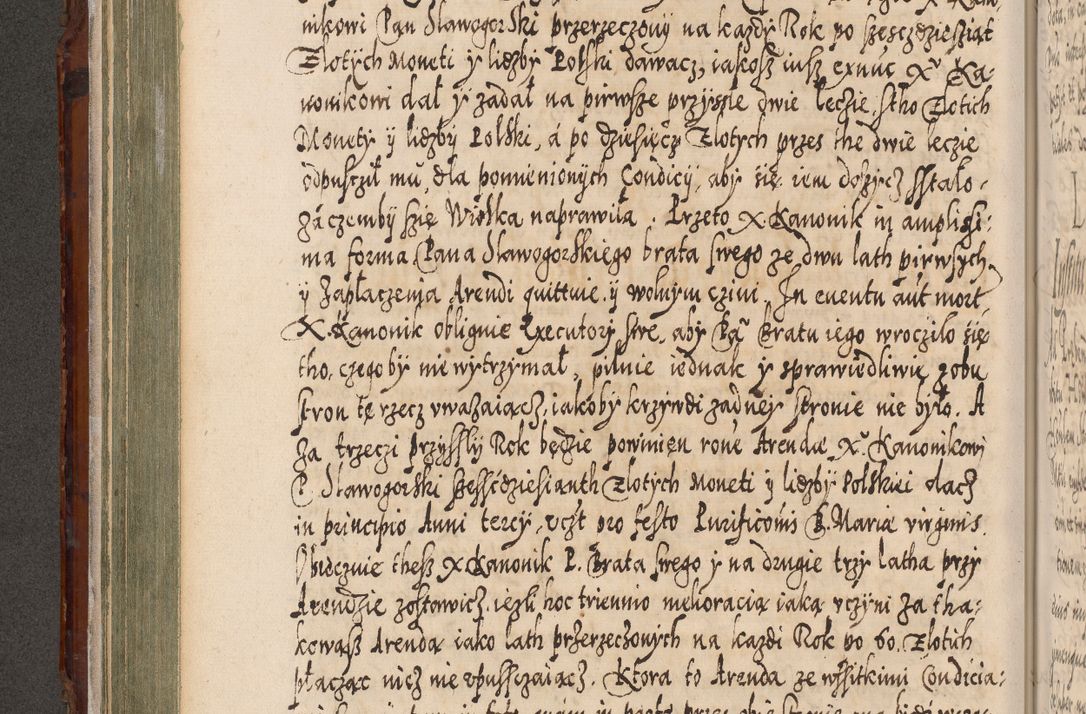 nikowi Pan Sławogorski przerzeczony na kazdy Rok po szesczdziesziąt
Złotych Moneti y liczby Polski dawacz, iakosz iusz exnuc Xᵘ Ka-
nonikowi dał y zadał na pirwsze przyszłe dwie leczie stho Złotich
Monety ÿ liczby Polski, á po dziesięcz Złotych przes the dwie leczie
odpuscził mu, dla pomienionÿch Condicÿ, aby się iem dosycz sstało
záczembÿ szię Wioska naprawiła. Przeto X Kanonik in amplissi-
ma forma Pana Sławogorskiego brata swego ze dwu lath pirwsych
ÿ Zapłaczenia Arendi quittuie, ÿ wolnym czini. In euentu aut mort
X. Kanonik obliguie Executorÿ swe, aby Pᵃ Bratu iego wrocziło się
tho, czegoby nie wytrzymał, pilnie iednak y sprawiedliwie z obu
stron tę rzecz vwazaiącz, iakoby krzywdi zadney stronie nie było. A
za trzeczi przyszly Rok będzie powinien rone Arendæ Xᵘ Kanonikowi
P. Sławogorski szesśćdziesianth Złotych Moneti ÿ liczbÿ Polskiei dacz
in principio Anni tercÿ, vczt pro festo Purificonis B. Mariæ virginis.
Obieczuie thesz X Kanonik P. Brata swego ÿ na drugie trzy latha przy
Arendzie zostawicz, iezli hoc triennio melioracią iaką vczÿni za tha-
kowąsz Arendą iako lath przerzeczonych na kazdi Rok po 60. Złotich
płacząc nicz nie vpusszczaiącz. Ktora to Arenda ze wssitkimi Condicia-